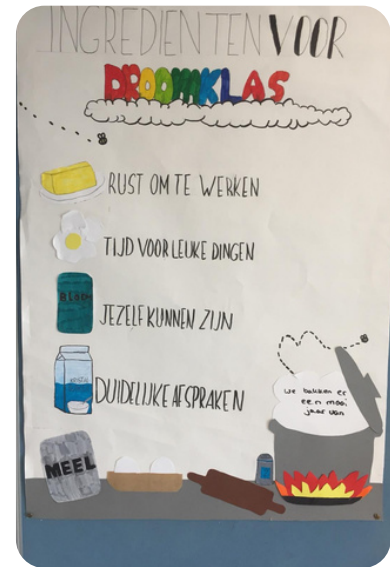 INGREDIËNTEN VOOR
DROOMKLAS
RUST OM TE WERKEN
TIJD VOOR LEUKE DINGEN
JEZELF KUNNEN ZIJN
DUIDELIJKE AFSPRAKEN
we bakken er
een mooi
jaar van
MEEL